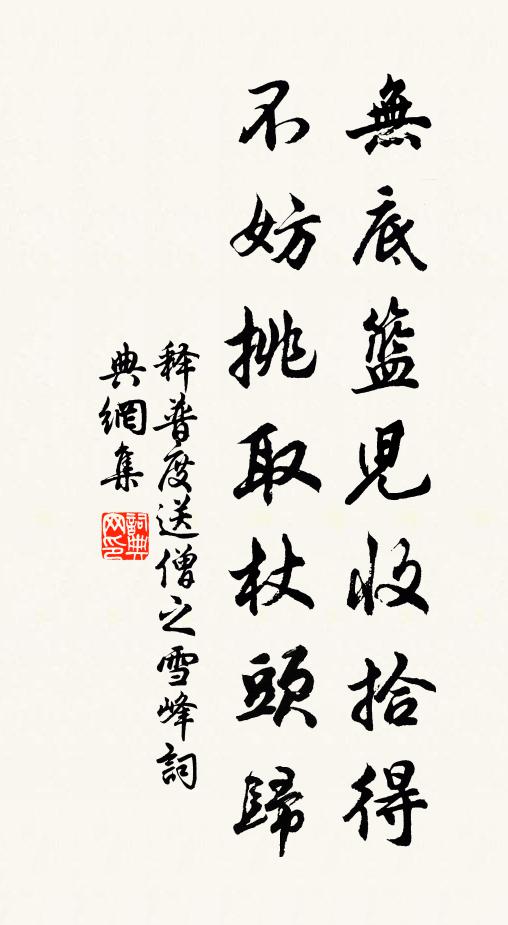 無底籃兒收拾得
不妨挑取杖頭歸
释普度送僧之雪峰詞
典網集
詞典网印